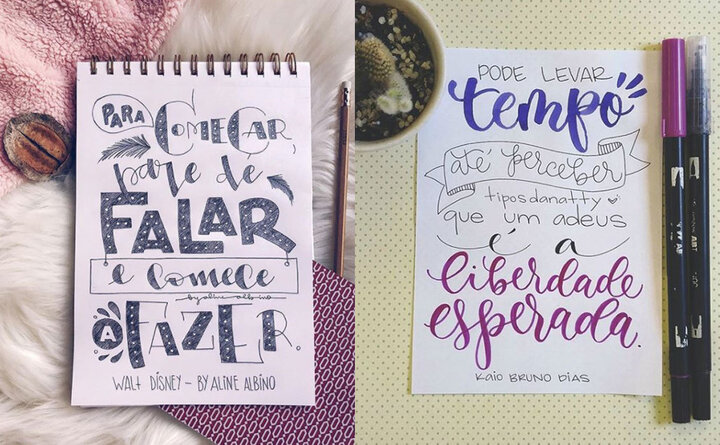 PARA COMEÇAR,
pare de
FALAR
e comece
by aline albino
A FAZER.
WALT DISNEY - BY ALINE ALBINO
PODE LEVAR
tempo
até perceber
tiposdanatty
que um adeus
é a
liberdade
esperada.
KAIO BRUNO DIAS